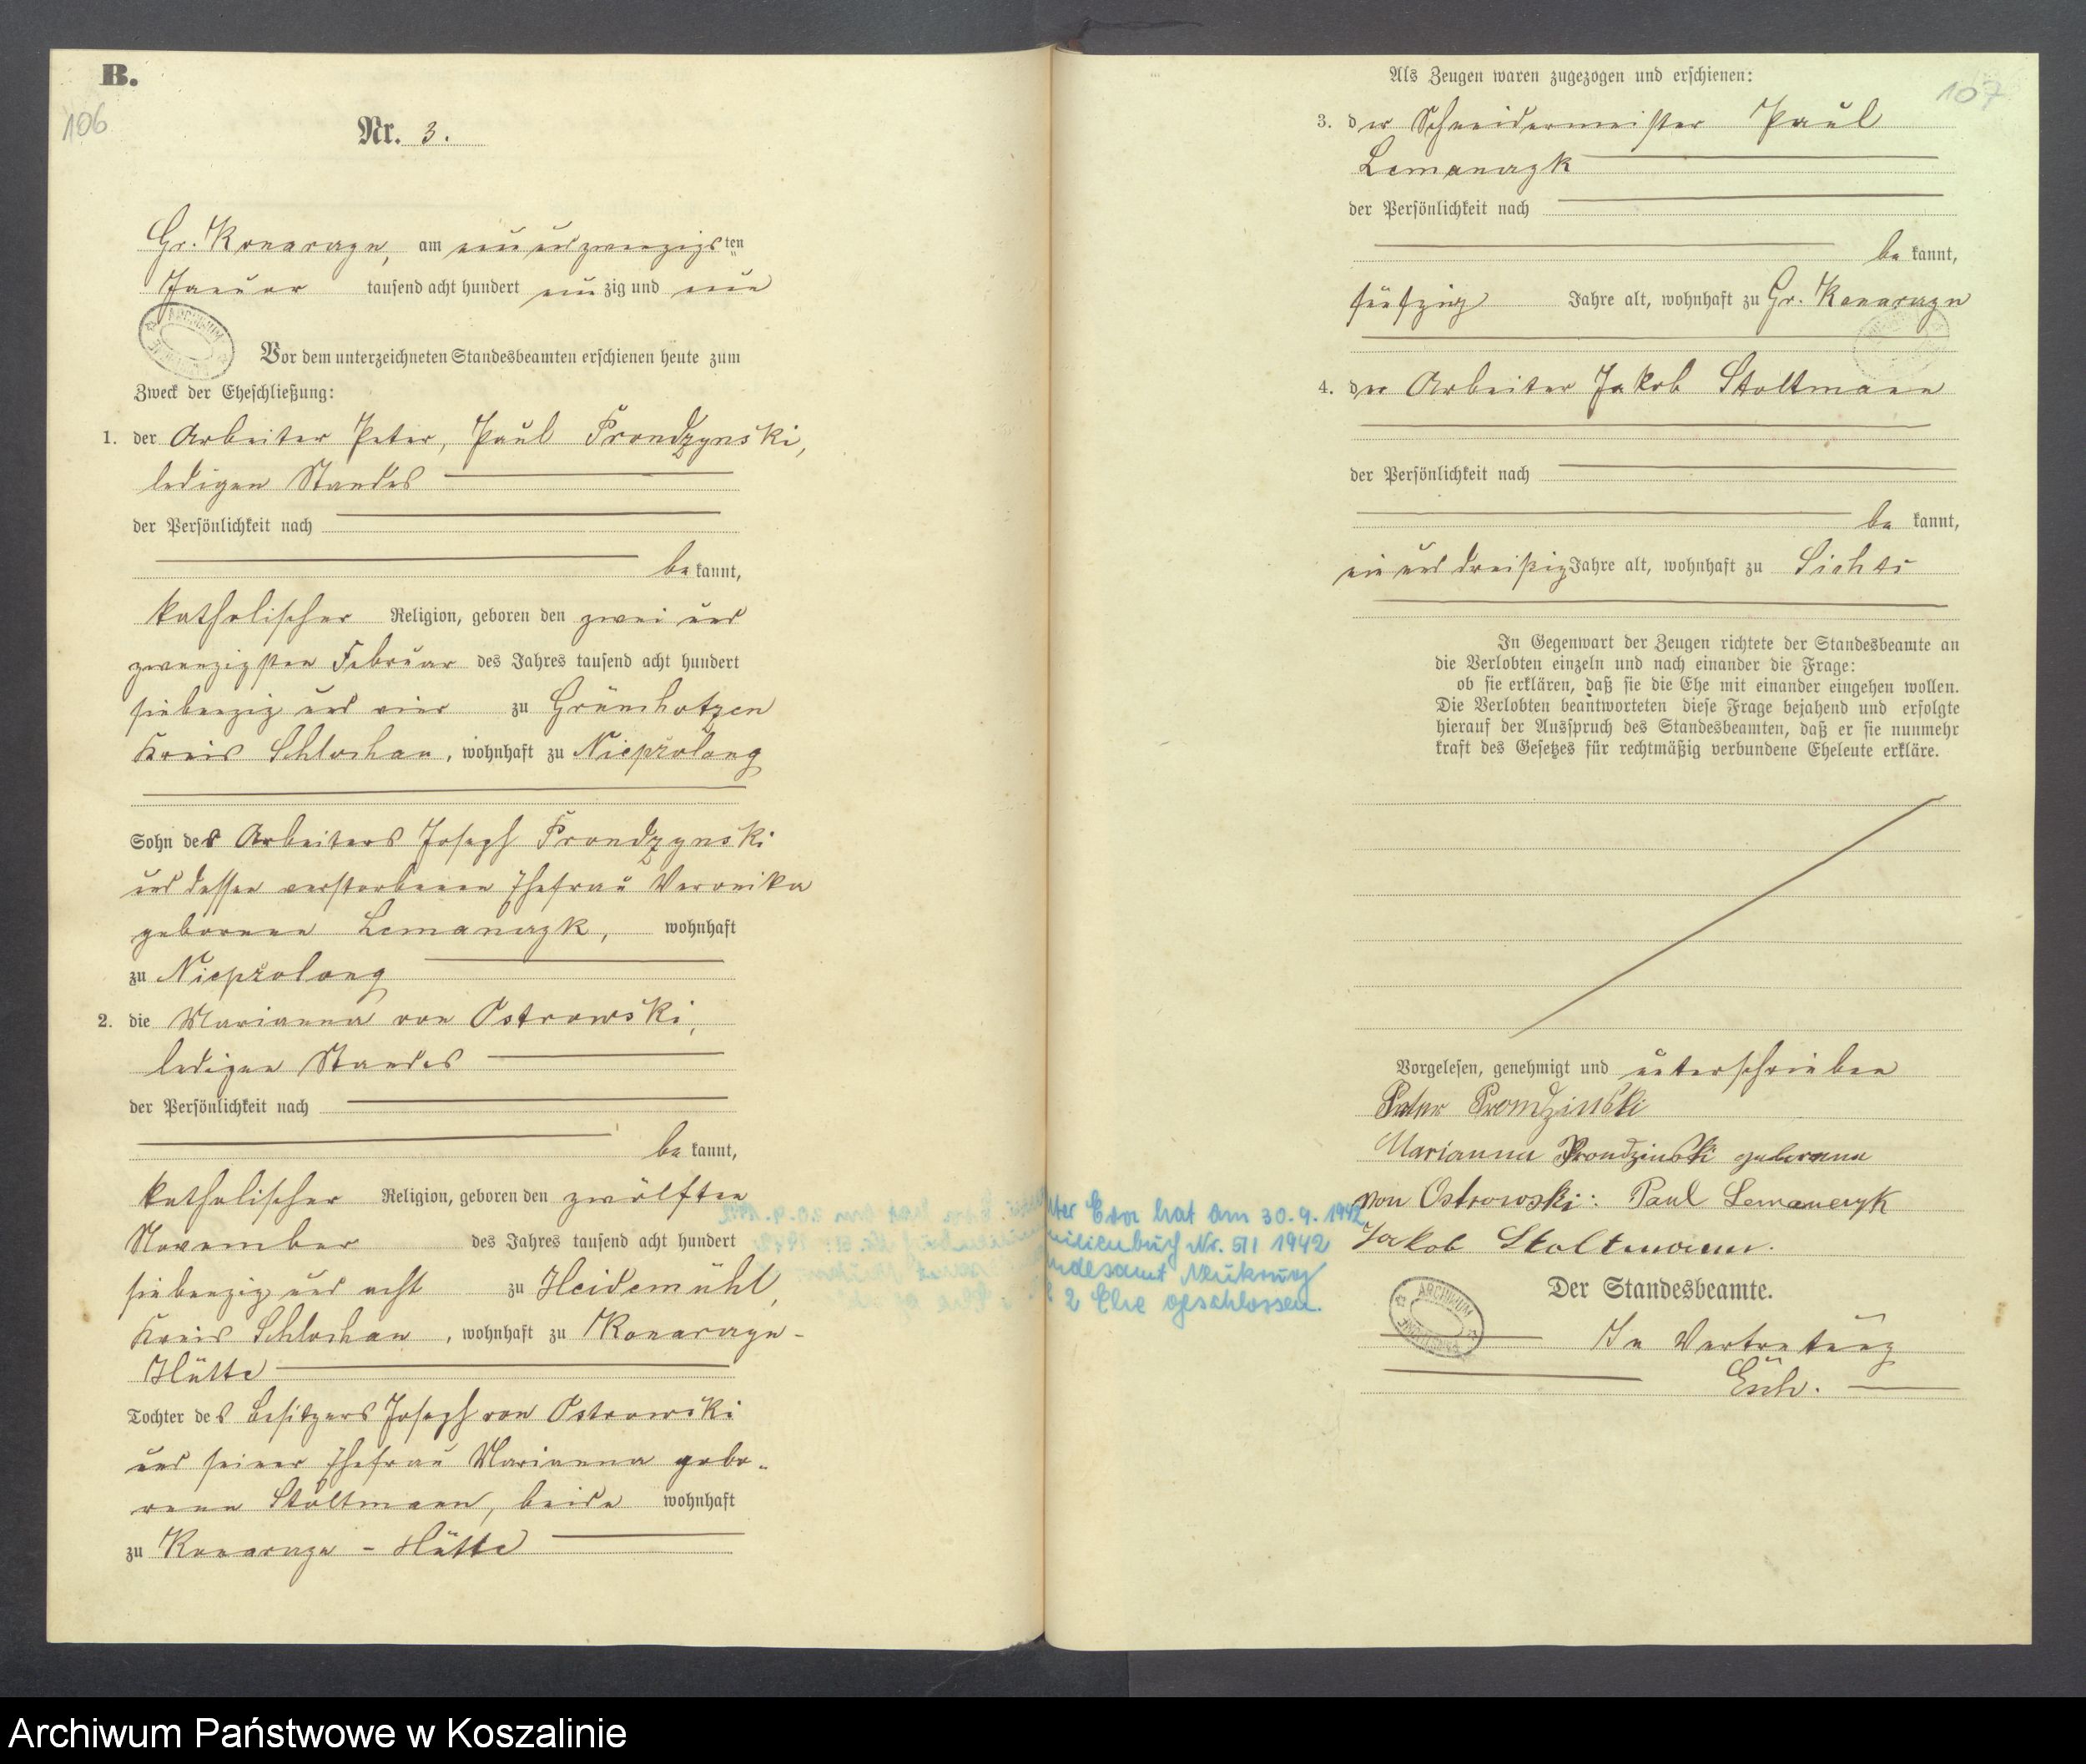 B.
106
Nr. 3.
Gr. Konarczyn, am neun und zwanzigsten
Januar tausend acht hundert neunzig und neun
ARCHIWUM
Vor dem unterzeichneten Standesbeamten erschienen heute zum
Zweck der Eheschließung:
1. der Arbeiter Peter, Paul Prondzynski,
ledigen Standes
der Persönlichkeit nach
be kannt,
katholischer Religion, geboren den zwei und
zwanzigsten Februar des Jahres tausend acht hundert
siebenzig und vier zu Grünchotzen
Kreis Schlochau, wohnhaft zu Nieprzolong
Sohn des Arbeiters Joseph Prondzynski
und dessen verstorbenen Ehefrau Veronika
geborenen Lemanczyk, wohnhaft
zu Nieprzolong
2. die Marianna von Ostrowski,
ledigen Standes
der Persönlichkeit nach
be kannt,
katholischer Religion, geboren den zwölften
November des Jahres tausend acht hundert
siebenzig und acht zu Heidemühl,
Kreis Schlochau, wohnhaft zu Konarczyn-
Hütte
Tochter des Besitzers Joseph von Ostrowski
und seiner Ehefrau Marianna gebo-
renen Stoltmann, beide wohnhaft
zu Konarczyn-Hütte
107
Als Zeugen waren zugezogen und erschienen:
3. der Schneidermeister Paul
Lemanczyk
der Persönlichkeit nach
be kannt,
fünfzig Jahre alt, wohnhaft zu Gr. Konarczyn
4. der Arbeiter Jakob Stoltmann
der Persönlichkeit nach
be kannt,
ein und dreißig Jahre alt, wohnhaft zu Sichts
In Gegenwart der Zeugen richtete der Standesbeamte an
die Verlobten einzeln und nach einander die Frage:
ob sie erklären, daß sie die Ehe mit einander eingehen wollen.
Die Verlobten beantworteten diese Frage bejahend und erfolgte
hierauf der Ausspruch des Standesbeamten, daß er sie nunmehr
kraft des Gesetzes für rechtmäßig verbundene Eheleute erkläre.
Vorgelesen, genehmigt und unterschrieben
Peter Prondzinski
Marianna Prondzinski geborene
von Ostrowski: Paul Lemanczyk
Jakob Stoltmann.
hat am 30.9.1942
Nr. 511 1942
Neukrug
2 Ehe geschlossen.
Der Standesbeamte.
ARCHIWUM
In Vertretung
Esch.
Archiwum Państwowe w Koszalinie